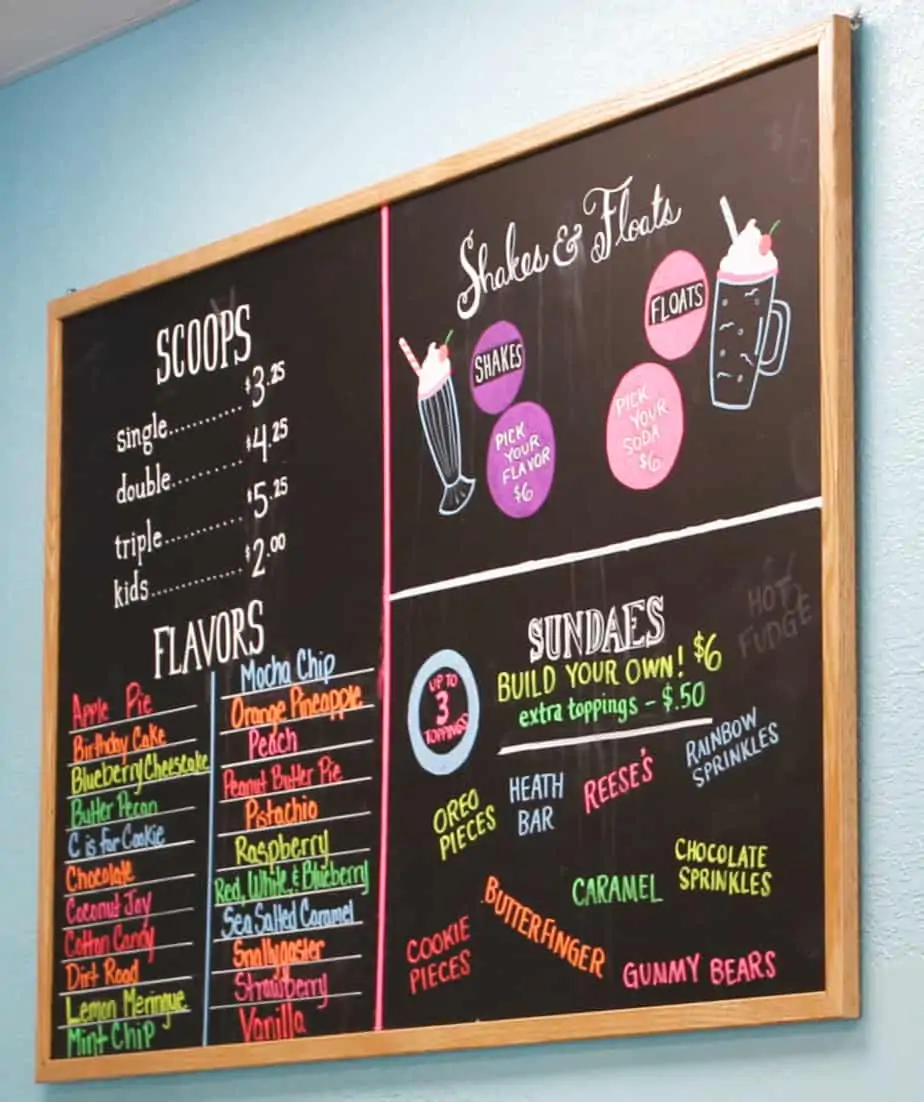 SCOOPS
single........... $3.25
double........... $4.25
triple........... $5.25
kids........... $2.00
FLAVORS
Apple Pie
Birthday Cake
Blueberry Cheesecake
Butter Pecan
C is for Cookie
Chocolate
Coconut Joy
Cotton Candy
Dirt Road
Lemon Meringue
Mint Chip
Mocha Chip
Orange Pineapple
Peach
Peanut Butter Pie
Pistachio
Raspberry
Red, White, & Blueberry
Sea Salted Caramel
Snallygaster
Strawberry
Vanilla
Shakes & Floats
SHAKES
PICK
YOUR
FLAVOR
$6
FLOATS
PICK
YOUR
SODA
$6
SUNDAES
BUILD YOUR OWN! $6
extra toppings - $.50
UP TO
3
TOPPINGS
HOT
FUDGE
OREO
PIECES
HEATH
BAR
REESE'S
RAINBOW
SPRINKLES
COOKIE
PIECES
BUTTERFINGER
CARAMEL
CHOCOLATE
SPRINKLES
GUMMY BEARS